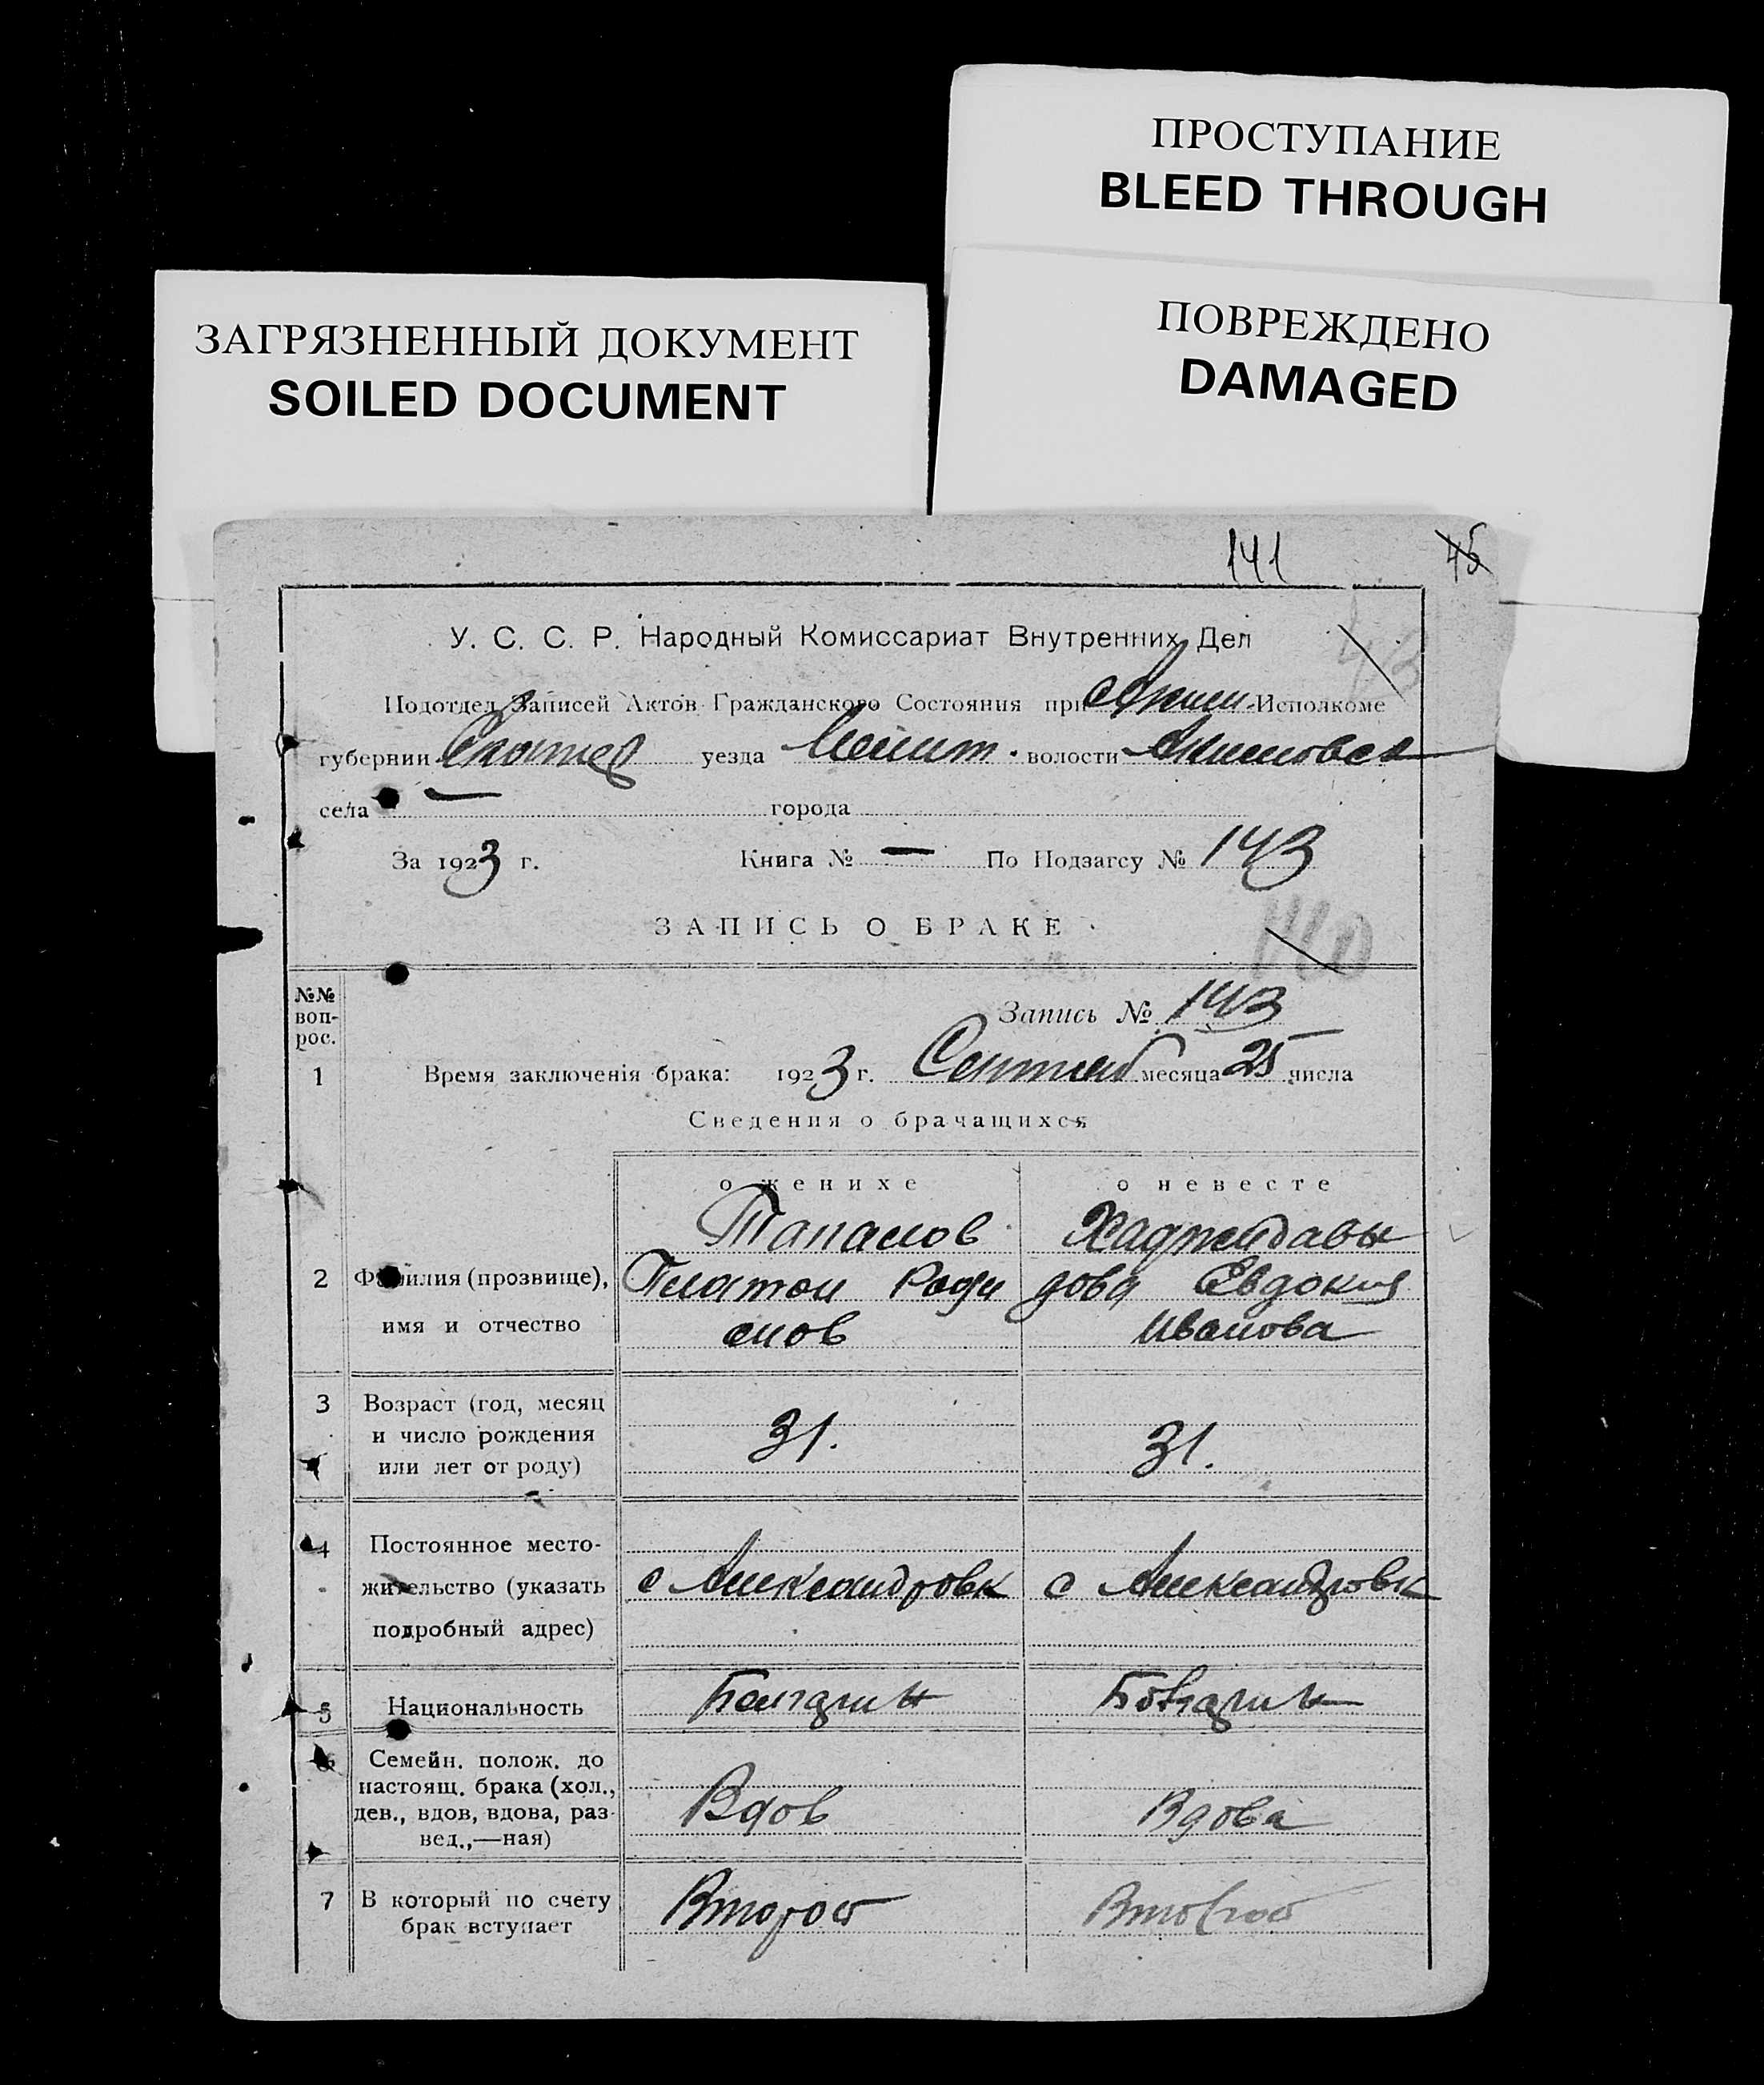 ПРОСТУПАНИЕ
BLEED THROUGH
ПОВРЕЖДЕНО
DAMAGED
ЗАГРЯЗНЕННЫЙ ДОКУМЕНТ
SOILED DOCUMENT
141 45
У. С. С. Р. Народный Комиссариат Внутренних Дел
Подотдел Записей Актов Гражданского Состояния при Аким. Исполкоме
губернии Екатер уезда Мелит. волости Акимовск
села — города
За 1923 г. Книга № — По Подзагсу № 143
ЗАПИСЬ О БРАКЕ
140
№№ вопрос.
Запись № 143
1 Время заключенія брака: 1923 г. Сентяб месяца 25 числа
Сведения о брачащихся
о женихе о невесте
Тапалов Хаджидавы
2 Фамилия (прозвище), Платон Роди дова Евдокия
имя и отчество онов Иванова
3 Возраст (год, месяц
и число рождения 31. 31.
или лет от роду)
4 Постоянное место-
жительство (указать с Александровк с Александровк
подробный адрес)
5 Национальность Болгарин Болгарин
6 Семейн. полож. до
настоящ. брака (хол.,
дев., вдов, вдова, раз- Вдов Вдова
вед.,—ная)
7 В который по счету Второй Второй
брак вступает